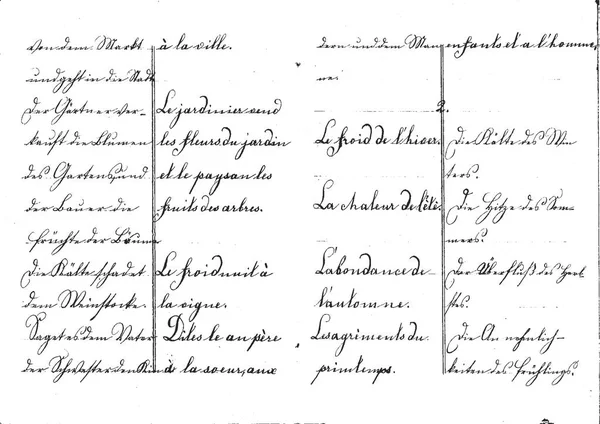 von dem Markt
und geht in die Stadt
Der Gärtner ver-
kauft die Blumen
des Gartens, und
der Bauer die
früchte der Bäume
Die Kälte schadet
dem Weinstocke.
Saget es dem Vater
der Schwester den Kin
à la ville.
Le jardinier vend
les fleurs du jardin
et le paysan les
fruits des arbres.
Le froid nuit à
la vigne.
Dites le au père
à la soeur, aux
dern und dem Man
ne.
enfants et a l'homme,
2.
Le froid de l'hiver.
La chaleur de l'été.
L'abondance de
l'automne.
Les agriments du
printemps.
Die Kälte des Win
ters.
Die Hitze des Som-
mers.
Der Überfluß des Herb
stes.
Die An nehmlich-
keiten des Frühlings.